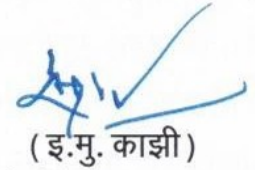 ( इ.मु. काझी )